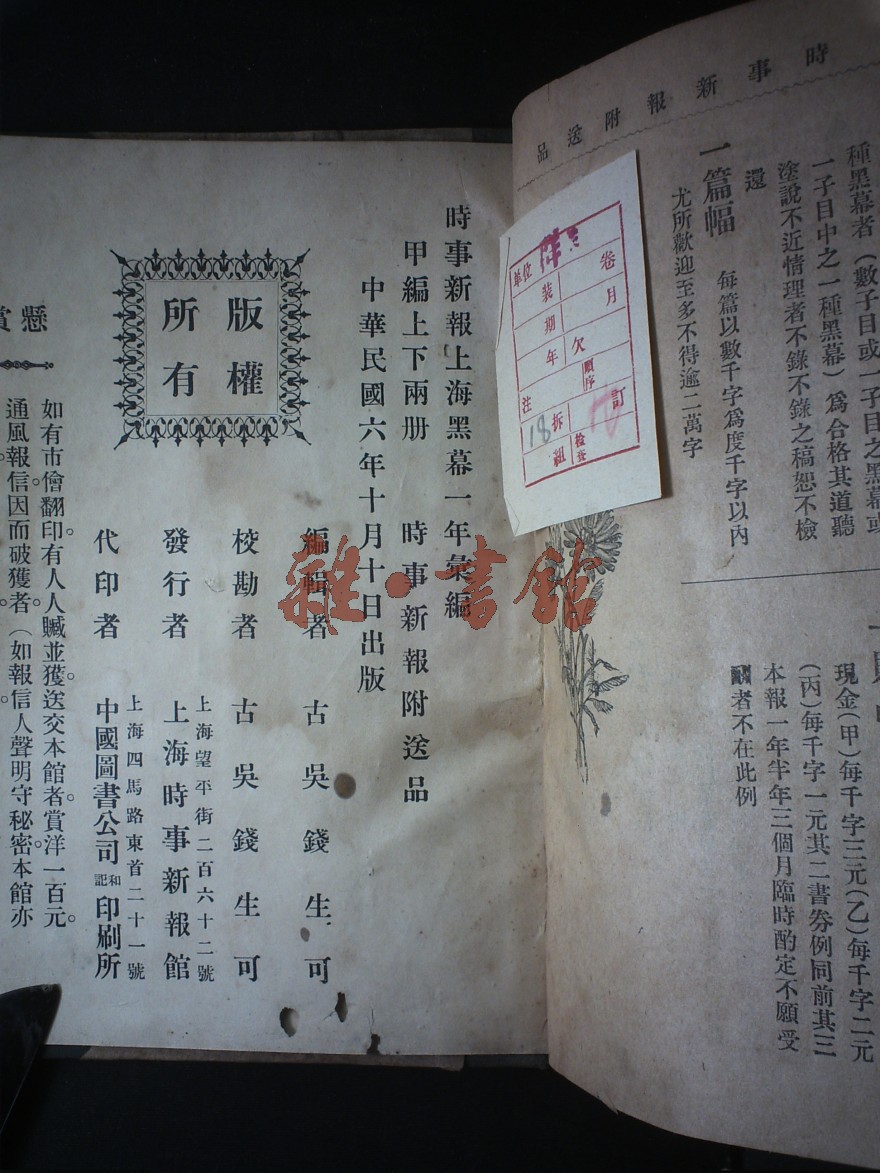 時事新報附送品
種黑幕者（數子目或一子目之黑幕或
一子目中之一種黑幕）爲合格其道聽
塗說不近情理者不錄不錄之稿恕不檢
還
一篇幅　每篇以數千字爲度千字以內
尤所歡迎至多不得逾二萬字
現金（甲）每千字三元（乙）每千字二元
（丙）每千字一元其二書券例同前其三
本報一年半年三個月臨時酌定不願受
酬者不在此例
單位
裝
卷
期
月
年
欠
注
順序
18
拆
訂
組
檢查
時事新報上海黑幕一年彙編
甲編上下兩册　時事新報附送品
中華民國六年十月十日出版
編輯者　古吳錢生可
校勘者　古吳錢生可
上海望平街二百六十二號
發行者　上海時事新報館
上海四馬路東首二十一號
代印者　中國圖書公司和記印刷所
版權
所有
懸賞
如有市儈翻印有人人贓並獲送交本館者賞洋一百元。
通風報信因而破獲者。（如報信人聲明守秘密本館亦
雜·書館